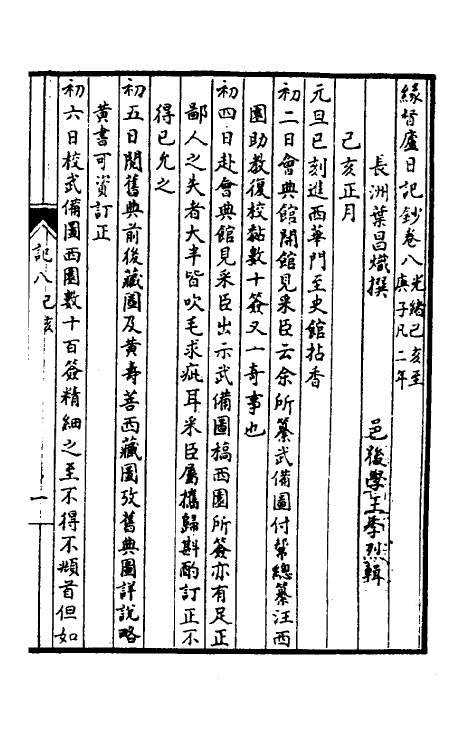 緣督廬日記鈔卷八光緒己亥至庚子凡二年
長洲葉昌熾撰
邑後學王季烈輯
己亥正月
元旦已刻進西華門至史館拈香
初二日會典館開館見采臣云余所纂武備圖付幫總纂汪西
園助教復校黏數十簽又一奇事也
初四日赴會典館見采臣出示武備圖稿西園所簽亦有足正
鄙人之失者大半皆吹毛求疵耳采臣屬攜歸斟酌訂正不
得已允之
初五日閱舊典前後藏圖及黃壽菩西藏圖攷舊典圖詳說略
黃書可資訂正
初六日校武備圖西園數十百簽精細之至不得不頫首但如
記八己亥
一